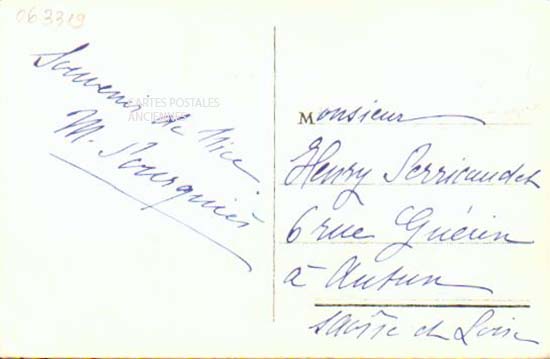 063319
Souvenir de Nice.
M. Pourquier
CARTES POSTALES
ANCIENNES
Monsieur
Henry Perricaudet
6 rue Guérin
à Autun
Saône et Loire